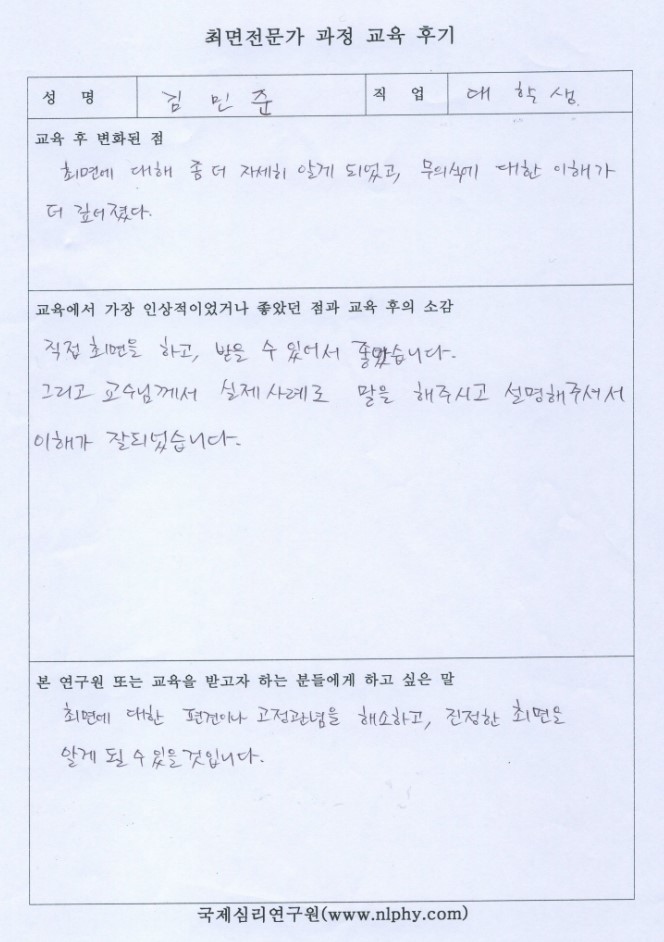 최면전문가 과정 교육 후기
성 명 김 민 준 직 업 대 학 생
교육 후 변화된 점
최면에 대해 좀 더 자세히 알게 되었고, 무의식에 대한 이해가
더 깊어졌다.
교육에서 가장 인상적이었거나 좋았던 점과 교육 후의 소감
직접 최면을 하고, 받을 수 있어서 좋았습니다.
그리고 교수님께서 실제사례로 말을 해주시고 설명해주셔서
이해가 잘되었습니다.
본 연구원 또는 교육을 받고자 하는 분들에게 하고 싶은 말
최면에 대한 편견이나 고정관념을 해소하고, 진정한 최면을
알게 될 수 있을것입니다.
국제심리연구원(www.nlphy.com)